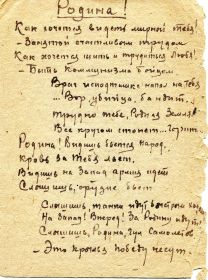 Родина!
Как хочется видеть мирной тебя!
– Занятой счастливым трудом
Как хочется жить и трудиться любя!
– Быть Коммунизма бойцом.
Враг исподтишка напал на тебя
... Вор, убийца,
Трудно тебе, Родная Земля!
Все кругом стонет...
Родина! Видишь бьется народ.
Кровь за тебя льет.
Видишь на Запад армия идет
Слышишь, орудие бьет
Слышишь, танки идут быстрою
На Запад! Вперед! За Родину
Слышишь, Родина, гул самолетов
– Это крылья победу несут.